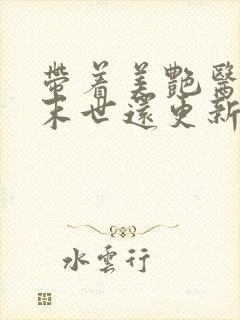 帶着美艷醫
末世還更新
水雲行